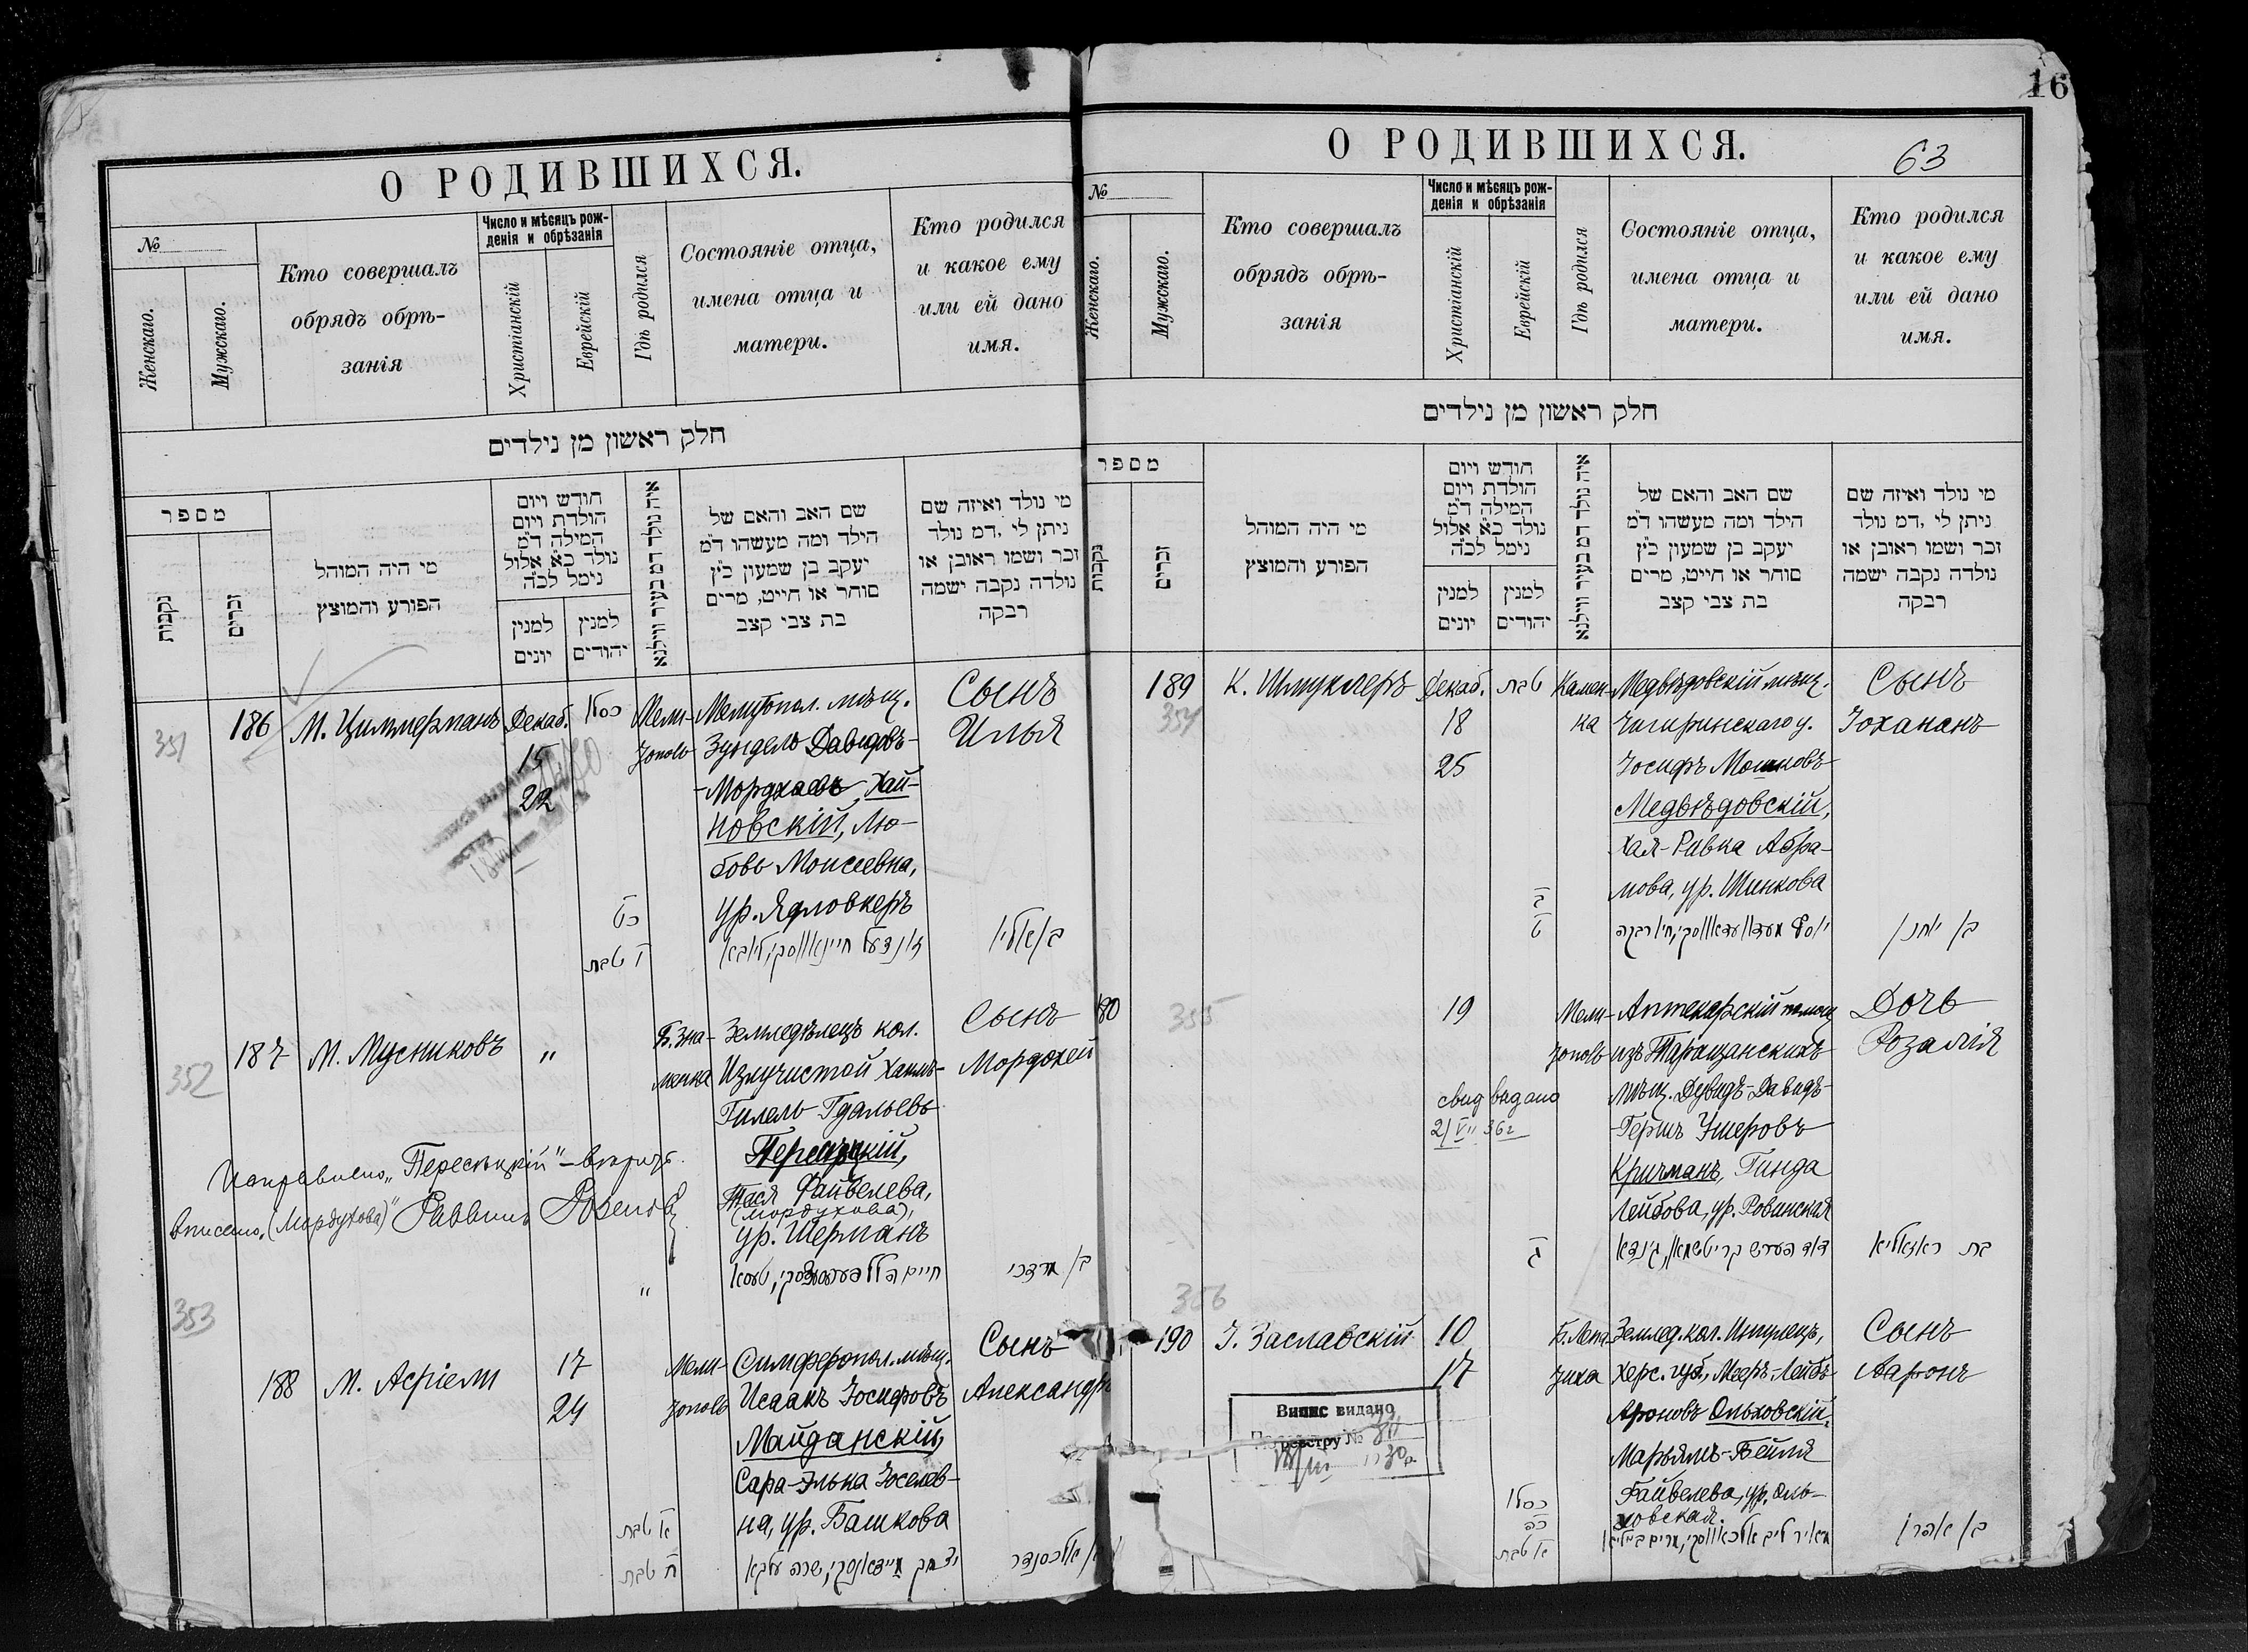 О РОДИВШИХСЯ.
№
Женскаго.
Мужскаго.
Кто совершалъ
обрядъ обрѣ-
занія
Число и мѣсяцъ рож-
денія и обрѣзанія
Христіанскій
Еврейскій
Гдѣ родился
Состояніе отца,
имена отца и
матери.
Кто родился
и какое ему
или ей дано
имя.
חלק ראשון מן נילדים
מספר
נקבות
זכרים
מי היה המוהל
הפורע והמוצץ
חודש ויום
הולדת ויום
המילה ד״מ
נולד כ״א אלול
נימל לכ״ה
למנין
יונים
למנין
יהודים
איה נולד דמ בעיר ווילנא
שם האב והאם של
הילד ומה מעשהו ד״מ
יעקב בן שמעון כ״ץ
סוחר או חייט, מרים
בת צבי קצב
מי נולד ואיזה שם
ניתן לי, דמ נולד
זכר ושמו ראובן או
נולדה נקבה ישמה
רבקה
351
186
М. Циммерманъ
Декаб.
15
22
כסלו
כט
ו טבת
Мели-
тополь
Мелитопол. мѣщ.
Зундель Давидовъ-
-Мордховъ Хай-
новскій, Лю-
бовь Моисеевна,
ур. Ядловкеръ
זונדעל חיינאווסקי, ליובא
Сынъ
Илья
בן אליו
352
187
М. Мусниковъ
"
"
Б. Зна-
менка
Земледѣлецъ кол.
Излучистой Хаимъ-
Гилель Гдальевъ
Пересѣцкій,
Тася Файвелева,
(Мордухова),
ур. Шерманъ
Сынъ
Мордохей
בן מרדכי
Исправлено „Пересѣцкій"-
вписано „(Мордухова)" Раввинъ
353
188
М. Асріели
17
24
א טבת
ח טבת
Мели-
тополь
Симферопол. мѣщ.
Исаакъ Іосифовъ
Майданскій,
Сара-Элька Іоселев-
на, ур. Башкова
יצחק מיידאנסקי, שרה עלקא
Сынъ
Александръ
בן אלכסנדר
16
О РОДИВШИХСЯ.
63
№
Женскаго.
Мужскаго.
Кто совершалъ
обрядъ обрѣ-
занія
Число и мѣсяцъ рож-
денія и обрѣзанія
Христіанскій
Еврейскій
Гдѣ родился
Состояніе отца,
имена отца и
матери.
Кто родился
и какое ему
или ей дано
имя.
חלק ראשון מן נילדים
מספר
נקבות
זכרים
מי היה המוהל
הפורע והמוצץ
חודש ויום
הולדת ויום
המילה ד״מ
נולד כ״א אלול
נימל לכ״ה
למנין
יונים
למנין
יהודים
איה נולד דמ בעיר ווילנא
שם האב והאם של
הילד ומה מעשהו ד״מ
יעקב בן שמעון כ״ץ
סוחר או חייט, מרים
בת צבי קצב
מי נולד ואיזה שם
ניתן לי, דמ נולד
זכר ושמו ראובן או
נולדה נקבה ישמה
רבקה
189
354
К. Шмуклеръ
Декаб.
18
25
טבת
ב
ט
Камен-
ка
Медвѣдовскій мѣщ.
Чигиринскаго у.
Іосифъ Мошковъ
Медвѣдовскій,
Хая-Ривка Абра-
мова, ур. Шинкова
Сынъ
Іохананъ
בן יוחנן
180
355
19
ג
Мели-
тополь
Аптекарскій помощ.
изъ Таращанскихъ
мѣщ. Дувидъ-Давидъ-
-Гершъ Умеровъ
Кричманъ, Гинда
Лейбова, ур. Ровинская
דוד הערש קריטשמאן, גינדא
Дочь
Розалія
בת ראזאליא
свид выдано
21 VII 36 г
356
190
І. Заславскій
10
17
כסלו
כה
א טבת
Б. Лепа-
тиха
Землед. кол. Ингулецъ,
Херс. губ., Мееръ-Лейбъ
Ароновъ Ольховскій,
Марьямъ-Бейля
Файвелева, ур. Оль-
ховская.
Сынъ
Ааронъ
בן אהרון
Випис видано
По реєстру №